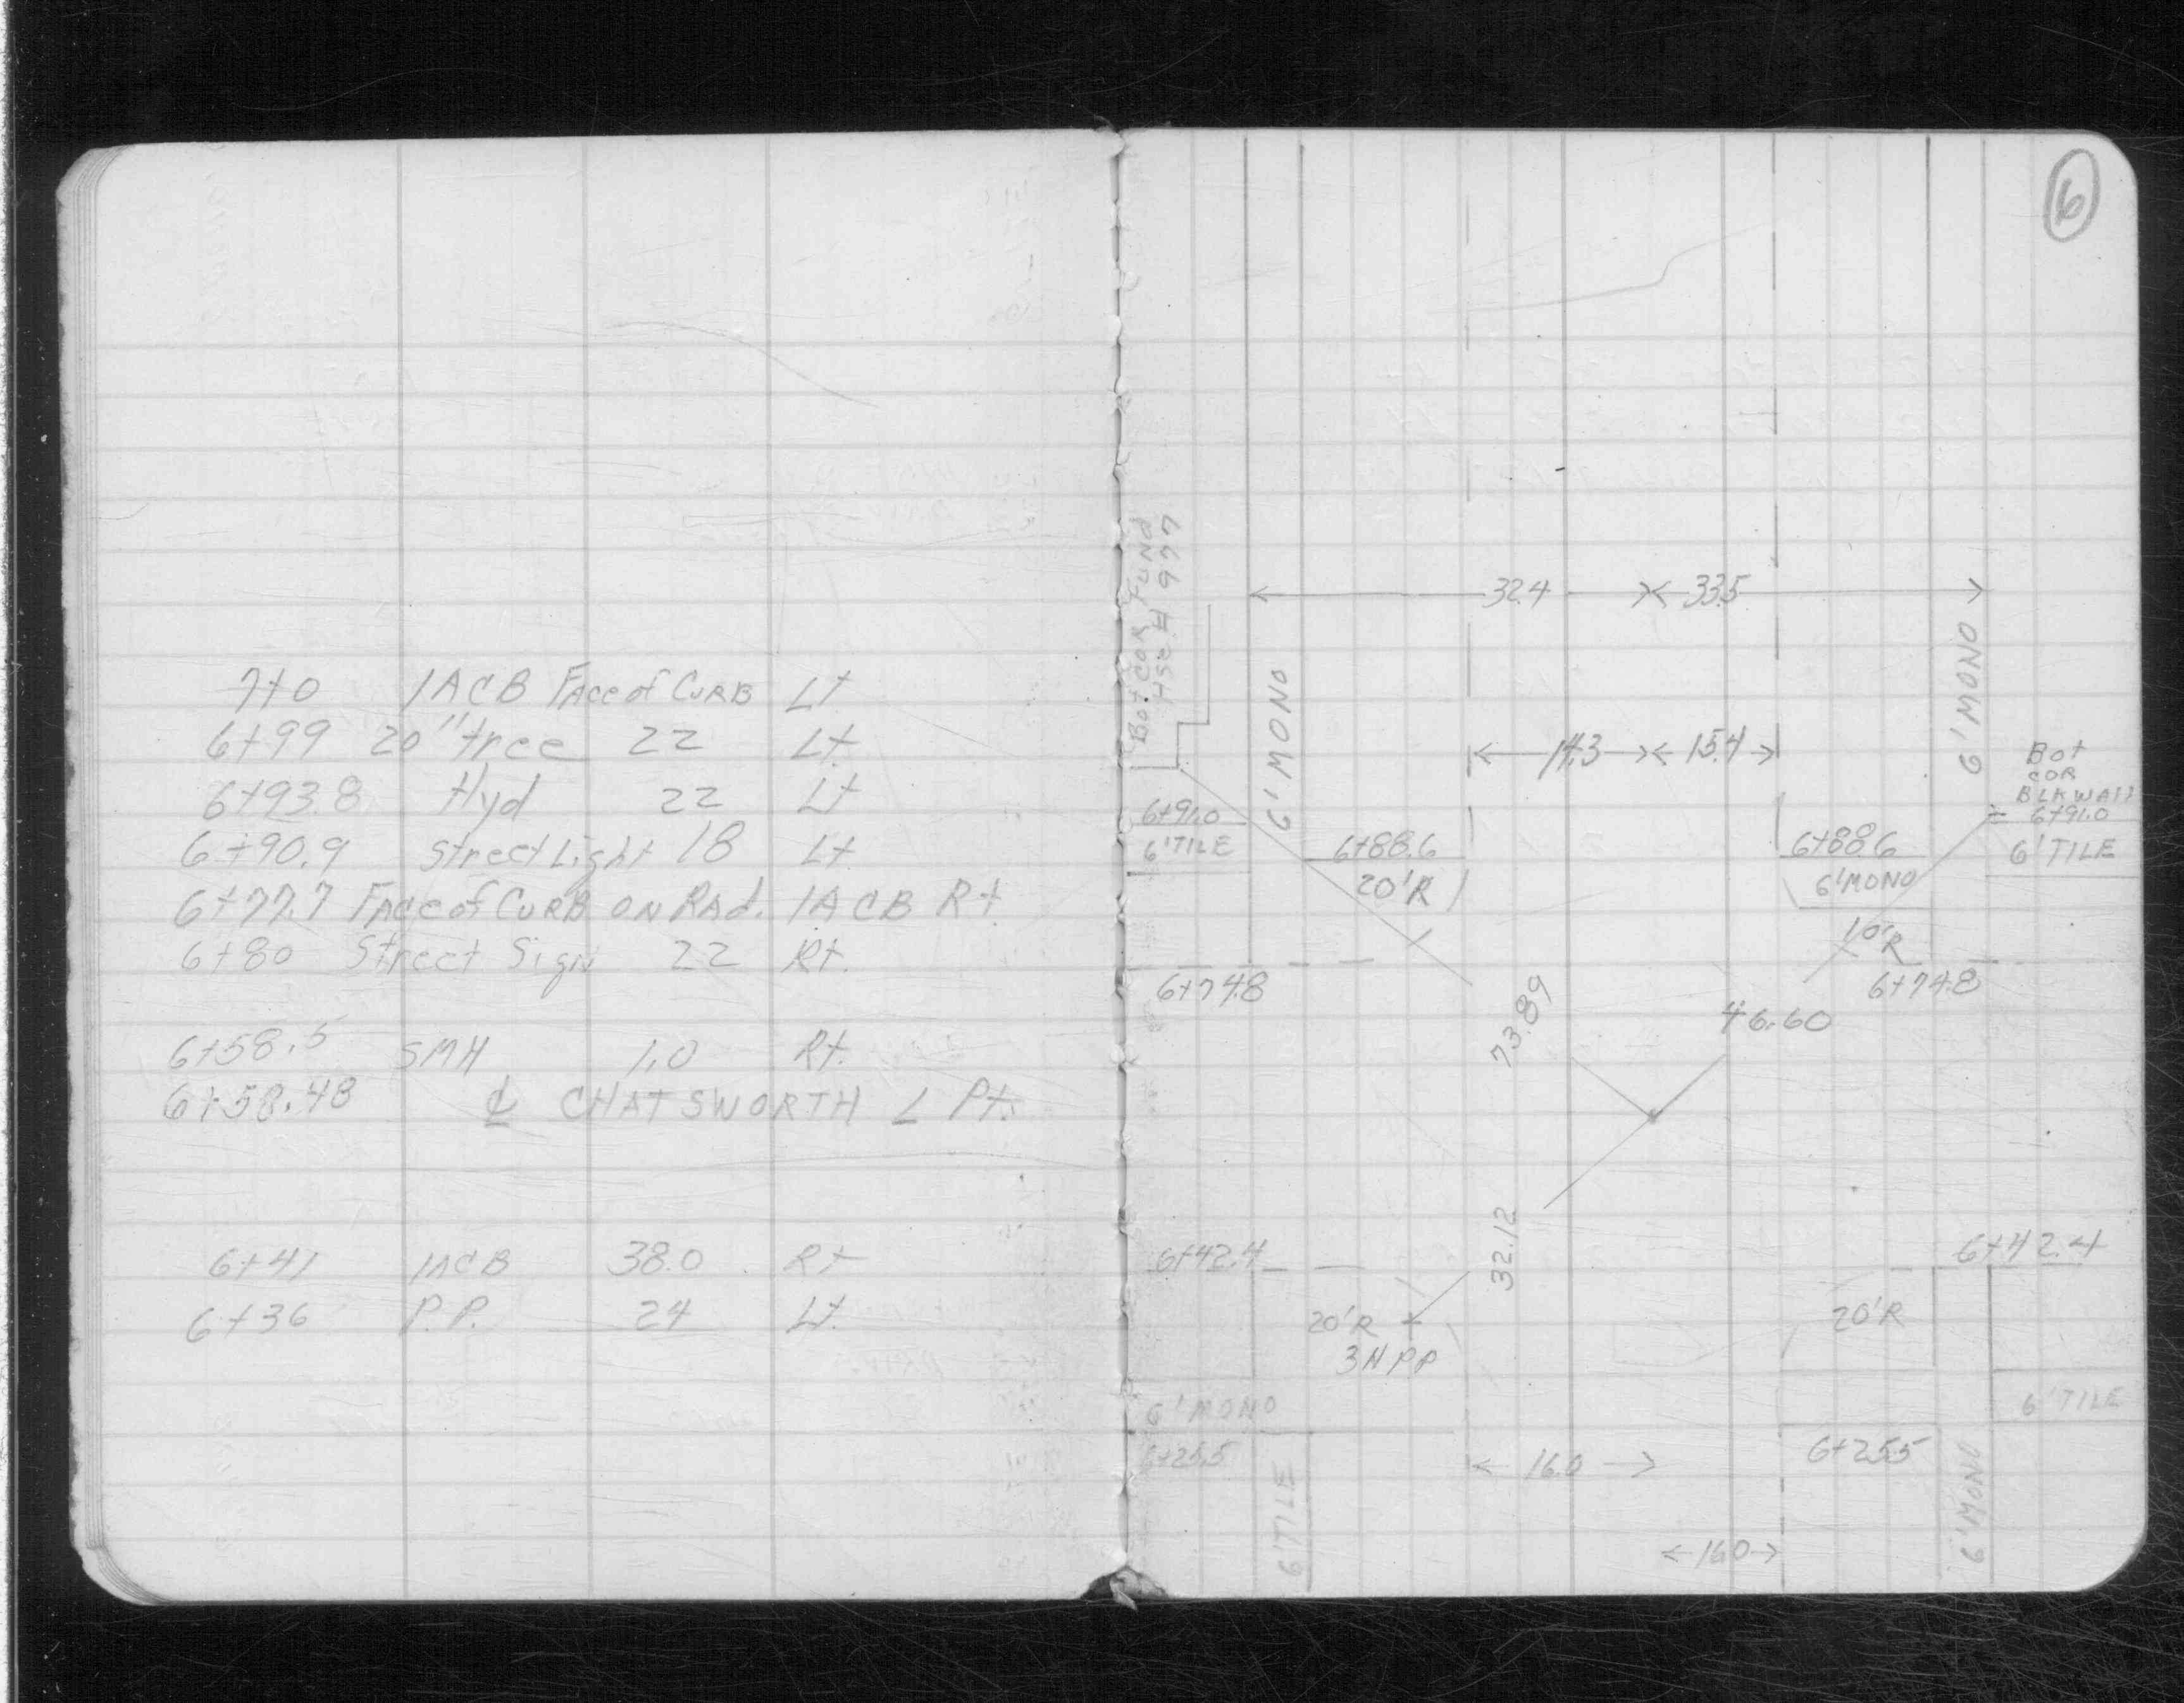 7+0 1ACB FACE of CURB Lt
6+99 20" tree 22 Lt.
6+93.8 Hyd 22 Lt
6+90.9 Street Light 18 Lt
6+77.7 FACE of CURB ON RAd. 1ACB Rt
6+80 Street Sign 22 Rt.
6+58.5 SMH 1.0 Rt.
6+58.48 ℄ CHATSWORTH ∠ Pt.
6+41 1ACB 38.0 Rt
6+36 P.P. 24 Lt.
6
Bot COR FUND
Hse # 977
32.4 33.5
6' MONO
6' MONO
14.3 15.4
Bot
COR
BLK WALL
6+91.0
6' TILE
6+91.0
6' TILE
6+88.6
20'R
6+88.6
6' MONO
10'R
6+74.8
6+74.8
73.89
46.60
32.12
6+42.4
6+42.4
20'R
3N PP
20'R
6' MONO
6+25.5
6' TILE
6' TILE
16.0
6+25.5
6' MONO
16.0